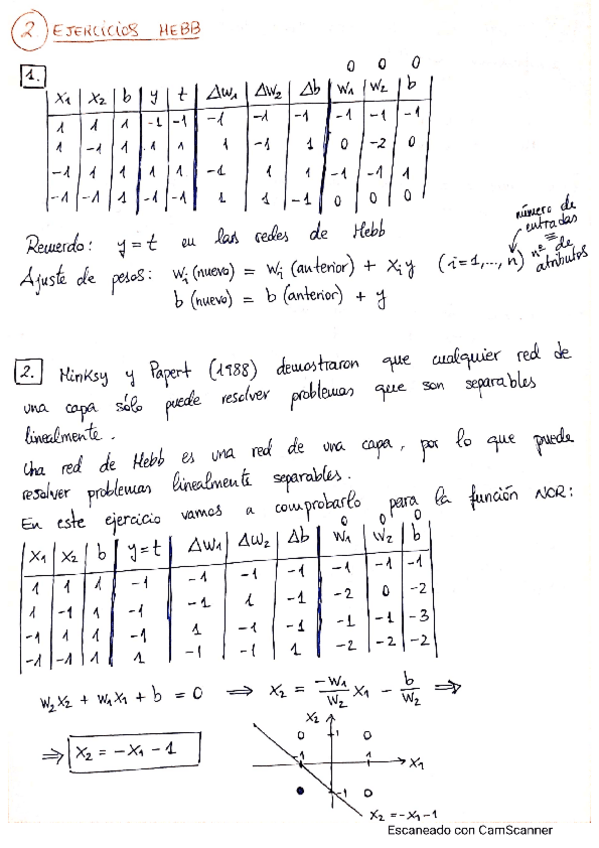 2 EJERCICIOS HEBB
0 0 0
1. X1 X2 b y t ΔW1 ΔW2 Δb W1 W2 b
1 1 1 -1 -1 -1 -1 -1 -1 -1 -1
1 -1 1 1 1 1 -1 1 0 -2 0
-1 1 1 1 1 -1 1 1 -1 -1 1
-1 -1 1 -1 -1 1 1 -1 0 0 0
Recuerdo: y=t en las redes de Hebb
Ajuste de pesos: wi (nuevo) = wi (anterior) + xi y (i=1,..., n)
b (nuevo) = b (anterior) + y
número de
entradas
≡
nº de
atributos
2. Minksy y Papert (1988) demostraron que cualquier red de
una capa sólo puede resolver problemas que son separables
linealmente.
Una red de Hebb es una red de una capa, por lo que puede
resolver problemas linealmente separables.
En este ejercicio vamos a comprobarlo para la función NOR:
0 0 0
X1 X2 b y=t ΔW1 ΔW2 Δb W1 W2 b
1 1 1 -1 -1 -1 -1 -1 -1 -1
1 -1 1 -1 -1 1 -1 -2 0 -2
-1 1 1 -1 1 -1 -1 -1 -1 -3
-1 -1 1 1 -1 -1 1 -2 -2 -2
W2X2 + W1X1 + b = 0 ⟹ X2 = -W1/W2 X1 - b/W2 ⟹
⟹ X2 = -X1 - 1
X2
0 1 0
-1 1 X1
-1 0
X2 = -X1 - 1
Escaneado con CamScanner